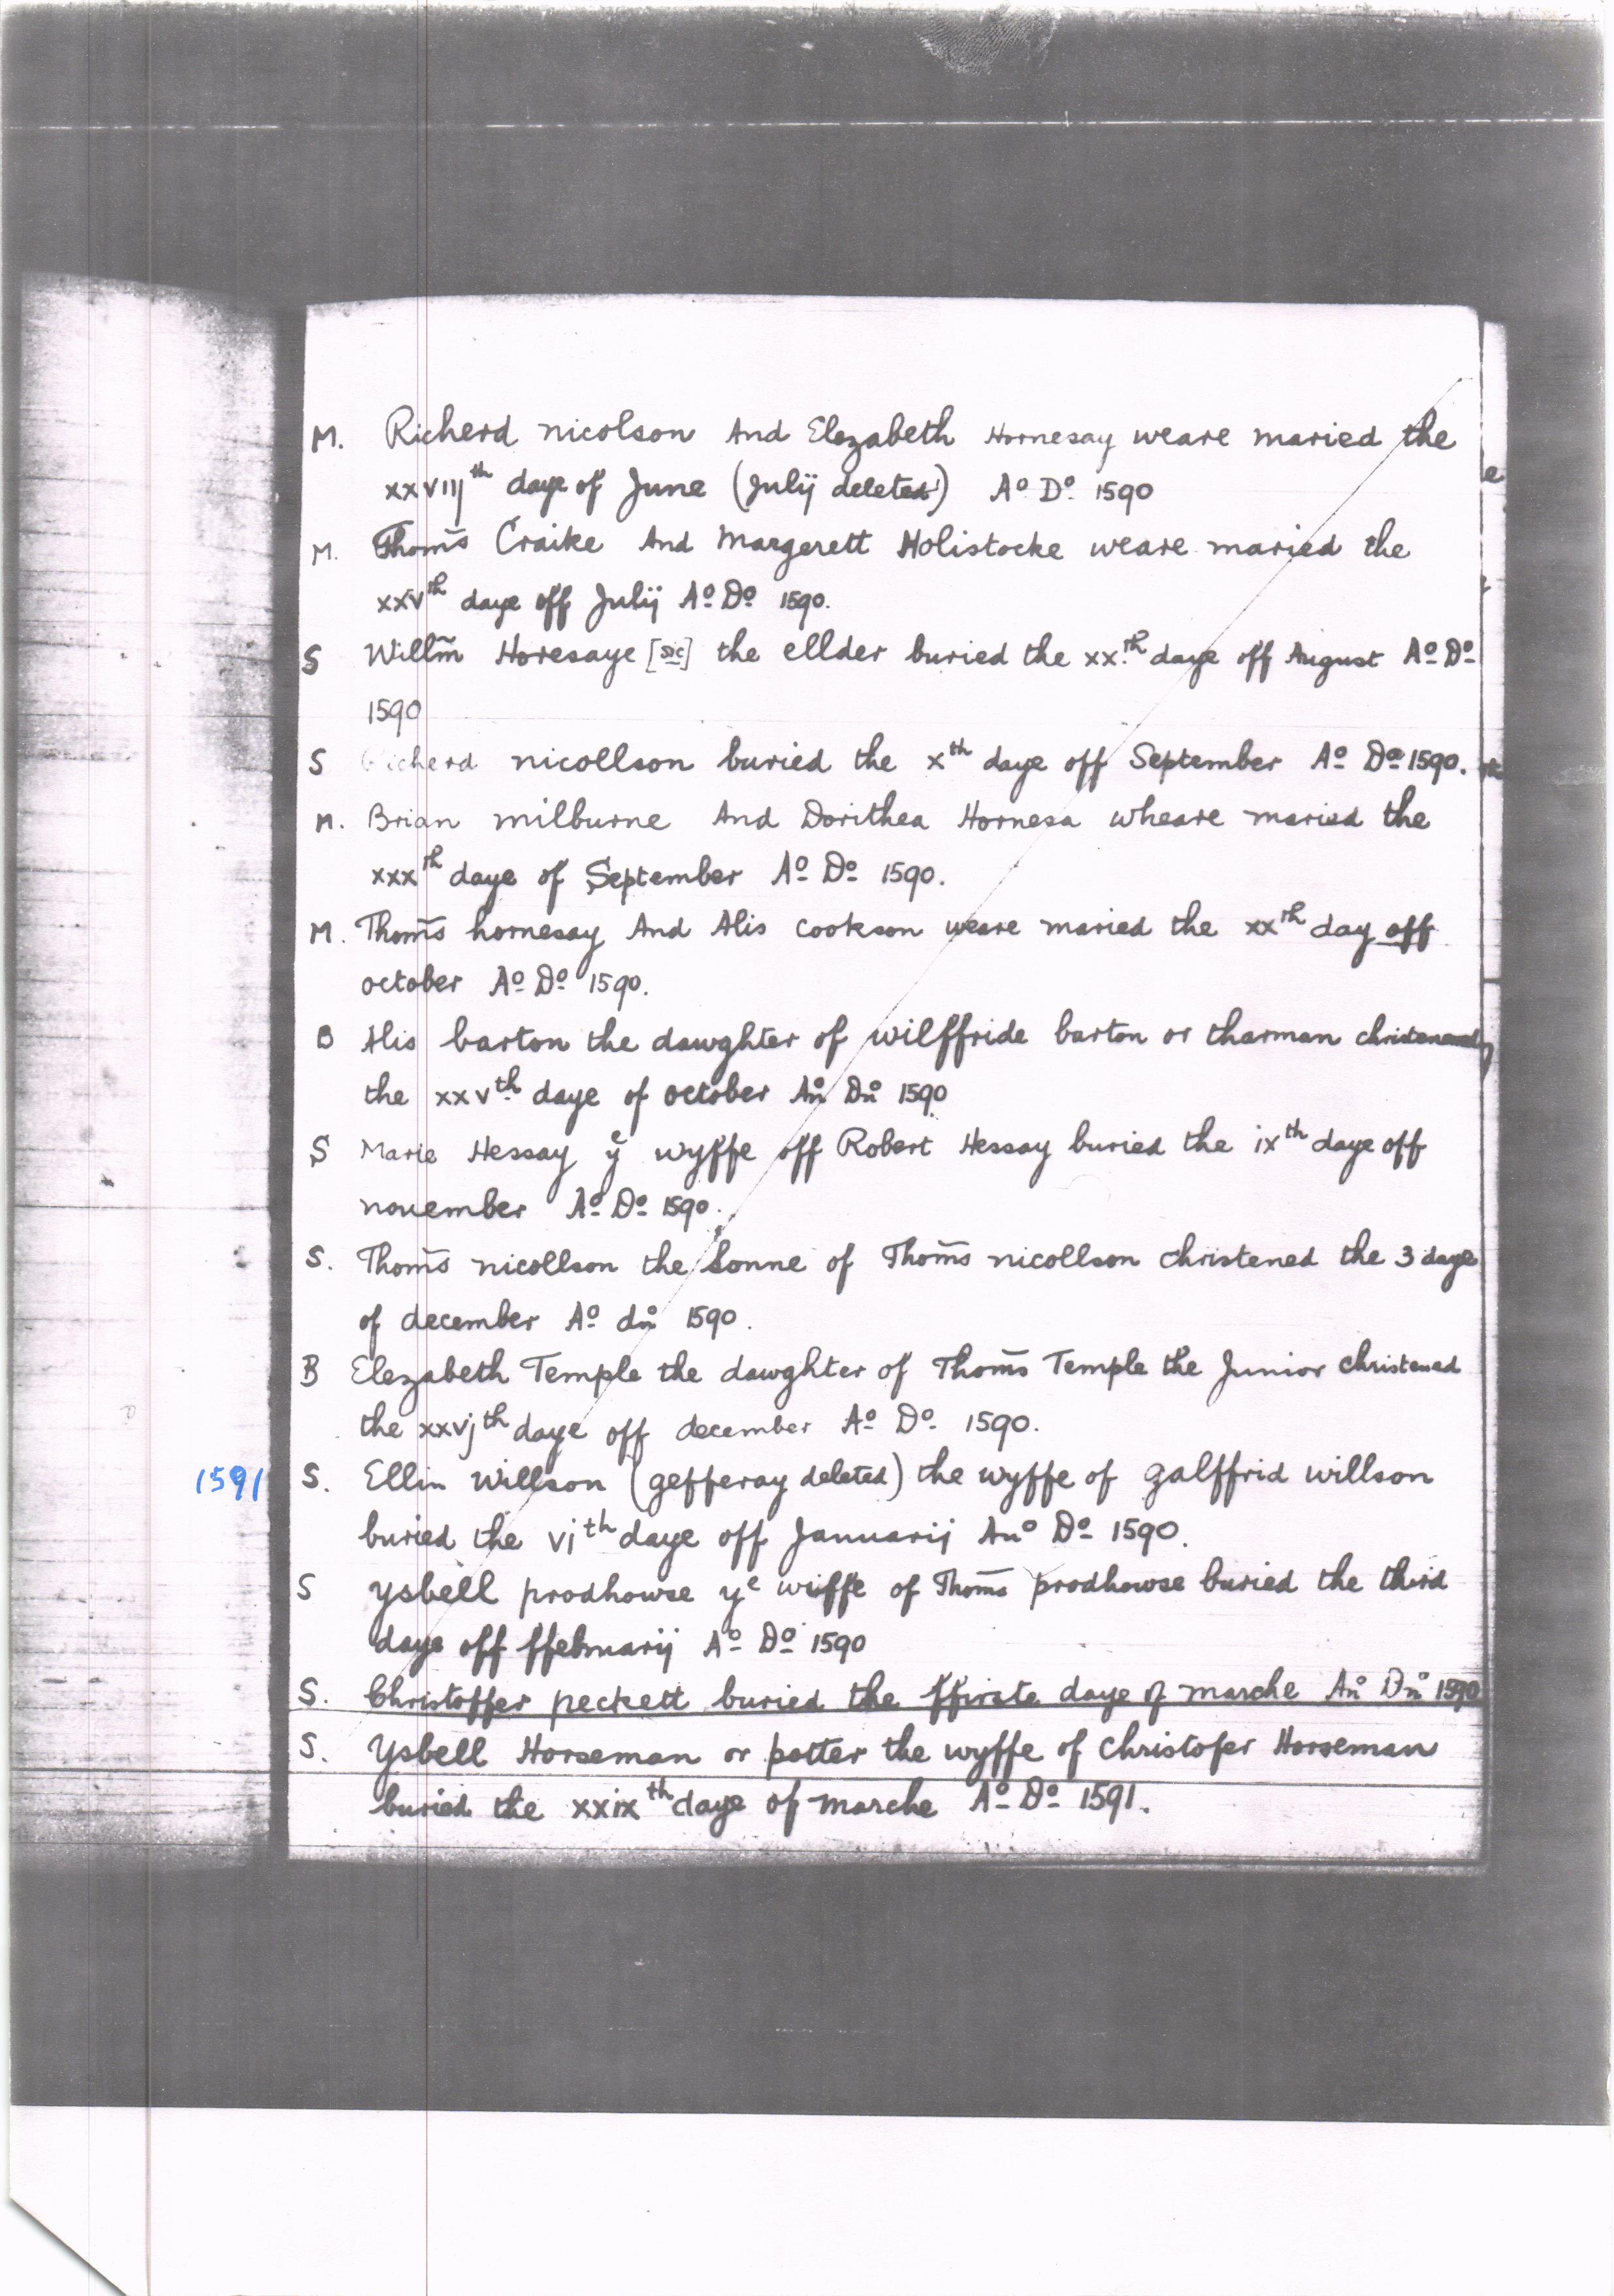 M. Richerd nicolson And Elezabeth Hornesay weare maried the
xxviijth daye of June (Julij deleted) Ao Do 1590
M. Thom̄s Craike And Margerett Holistocke weare maried the
xxvth daye off Julij Ao Do 1590.
S Willm̃ Horesaye [sic] the ellder buried the xx.th daye off August Ao Do
1590
S Richerd nicollson buried the xth daye off September Ao Do 1590.
M. Brian milburne And Dorithea Hornesa wheare maried the
xxxth daye of September Ao Do 1590.
M. Thom̄s hornesay And Alis cookson weare maried the xxth day off
october Ao Do 1590.
B Alis barton the dawghter of wilffride barton or tharman christened
the xxvth daye of october Ano Dno 1590
S Marie Hessay ye wyffe off Robert Hessay buried the ixth daye off
november Ao Do 1590.
S. Thom̄s nicollson the sonne of Thom̄s nicollson christened the 3 daye
of december Ao dno 1590.
B Elezabeth Temple the dawghter of Thom̄s Temple the Junior christened
the xxvjth daye off december Ao Do 1590.
1591 S. Ellin Willson (gefferay deleted) the wyffe of galffrid willson
buried the vjth daye off Januarij Ano Do 1590.
S ysbell prodhowse ye wiffe of Thom̄s prodhowse buried the third
daye off ffebruarij Ao Do 1590
S. Christoffer peckett buried the ffirste daye of marche Ano Dno 1590
S. Ysbell Horseman or potter the wyffe of Christofer Horseman
buried the xxixth daye of marche Ao Do 1591.